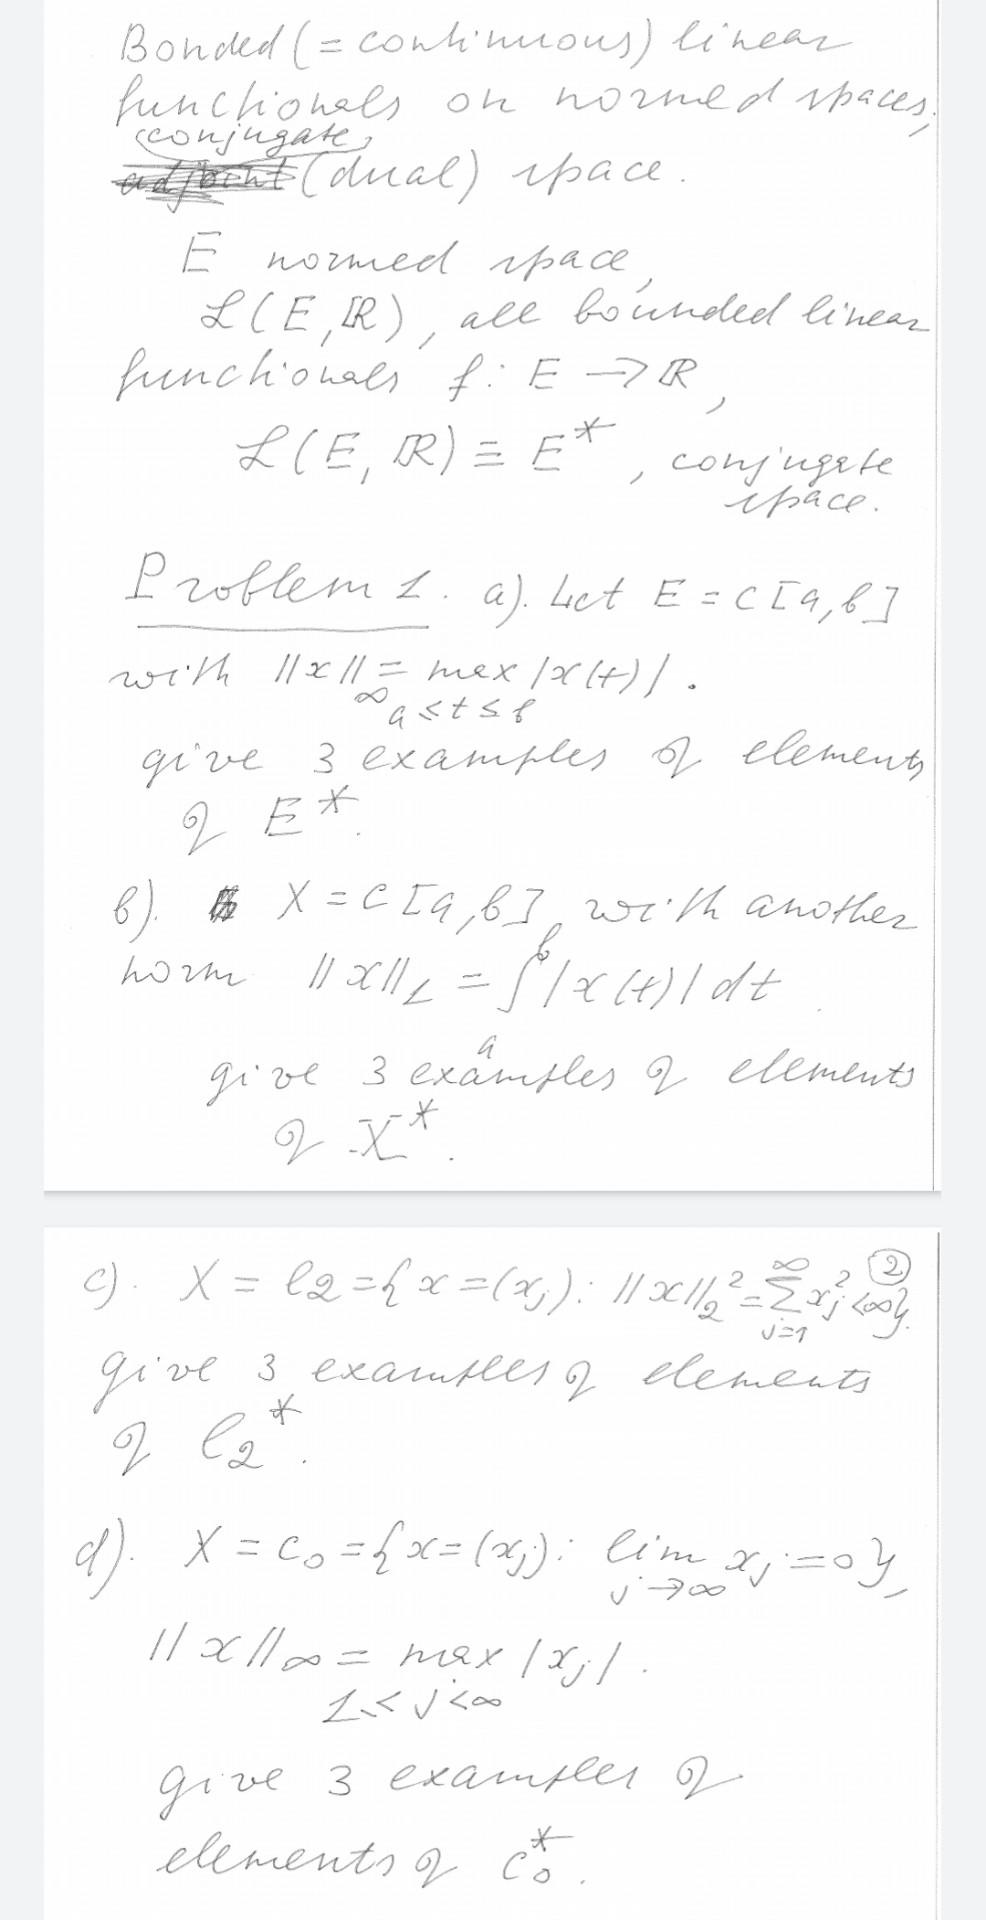 Bonded (= continuous) linear
functionals on normed spaces,
conjugate
adjoint (dual) space.
E normed space,
ℒ(E, ℝ), all bounded linear
functionals f: E → ℝ,
ℒ(E, ℝ) ≡ E*, conjugate
space.
Problem 1. a). Let E = C[a,b]
with ||x||∞ = max |x(t)|.
a≤t≤b
give 3 examples of elements
of E*.
b). X = C[a,b], with another
norm ||x||₁ = ∫ₐᵇ |x(t)| dt.
give 3 examples of elements
of X*.
②
c). X = l₂ = {x = (xⱼ): ||x||₂² = ∑_{j=1}^∞ xⱼ² < ∞}.
give 3 examples of elements
of l₂*.
d). X = c₀ = {x = (xⱼ): lim xⱼ = 0},
j→∞
||x||∞ = max |xⱼ|.
1≤j<∞
give 3 examples of
elements of c₀*.